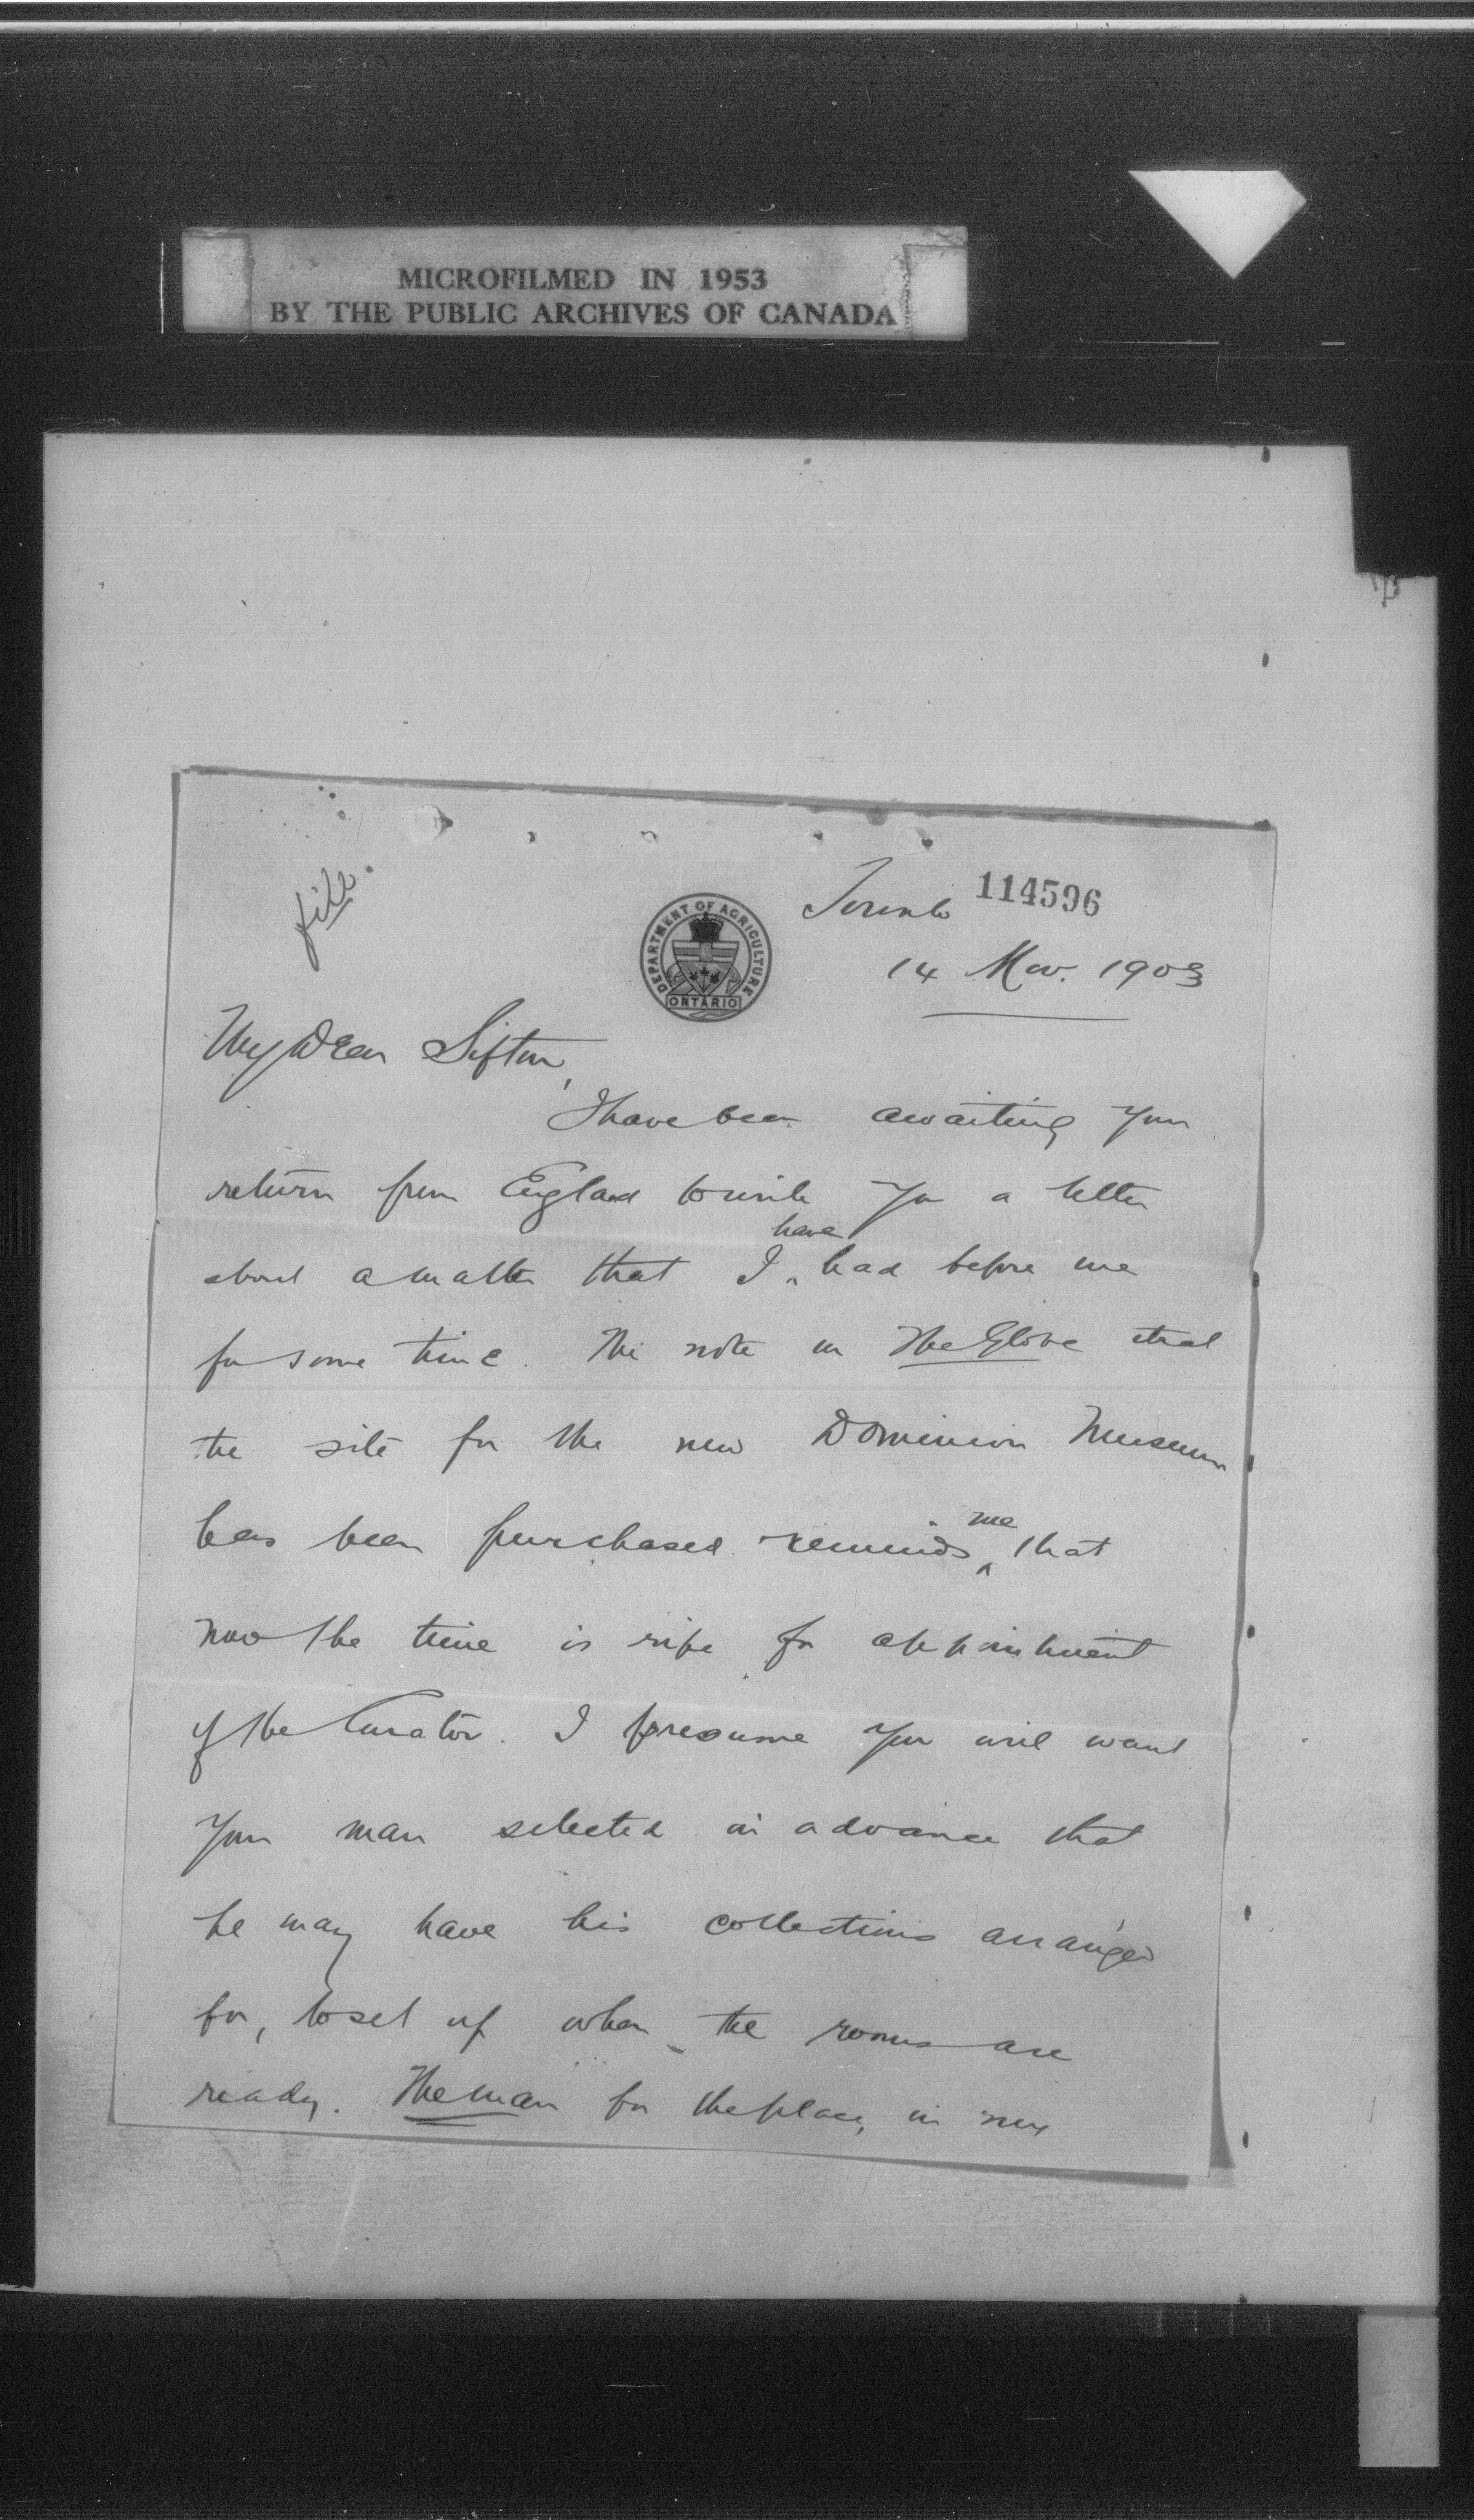 MICROFILMED IN 1953
BY THE PUBLIC ARCHIVES OF CANADA
file.
DEPARTMENT OF AGRICULTURE
ONTARIO
Toronto 114596
14 Nov. 1903
My Dear Sifton,
I have been awaiting your
return from England to write you a letter
about a matter that I have had before me
for some time. The note in The Globe that
the site for the new Dominion Museum
has been purchased reminds me that
now the time is ripe for appointment
of the Curator. I presume you will want
your man selected in advance that
he may have his collections arranged
for, to set up when the rooms are
ready. The man for the place, in my